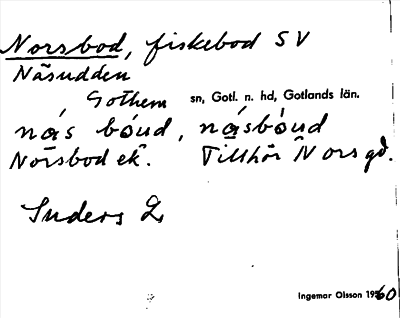 Norsbod, fiskebod SV
Näsudden
Gothem sn, Gotl. n. hd, Gotlands län.
nás bóud, násbóud
Norsbod ek. Tillhör Nors gd.
Suders
Ingemar Olsson 1960